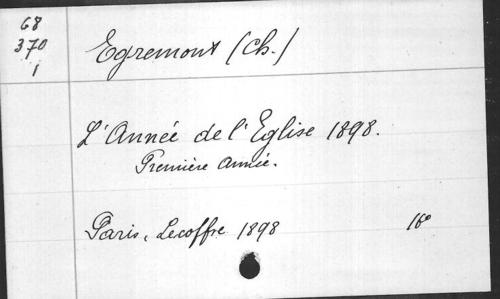 68
370
1
Egremont (Ch.)
L'Année de l'Eglise 1898.
Première année.
Paris, Lecoffre 1898 16°